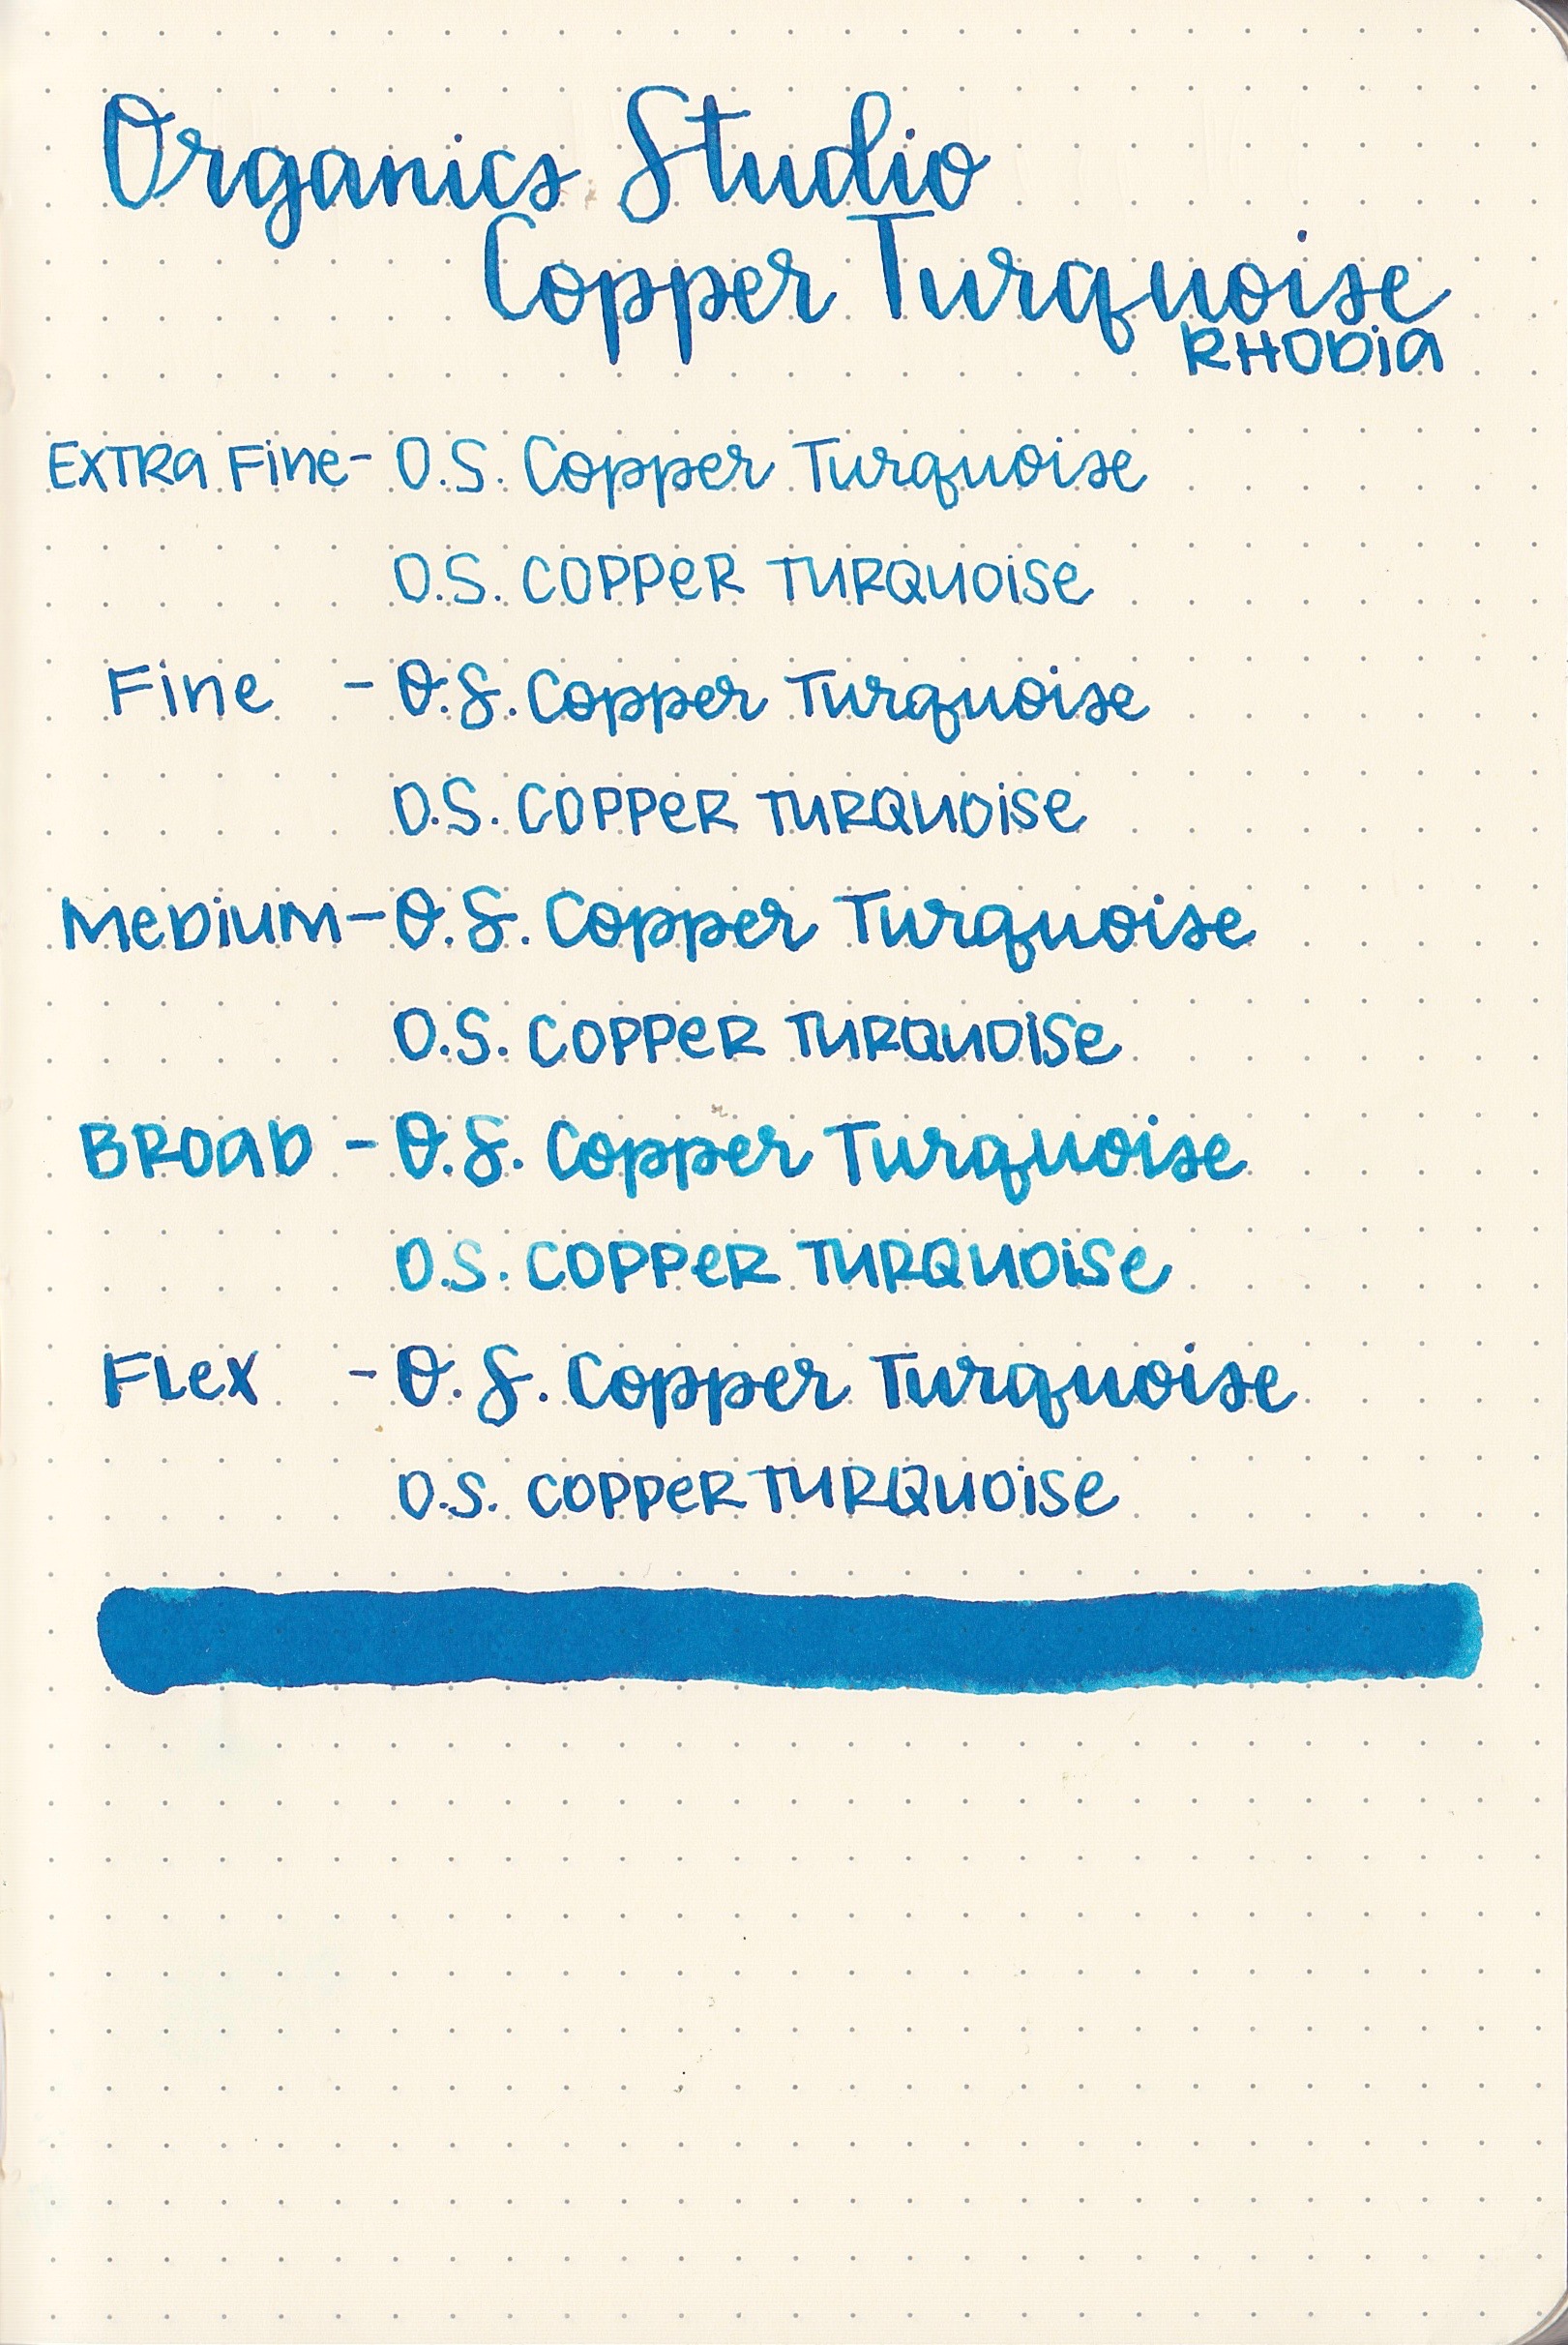 Organics Studio
Copper Turquoise
RHODiA
EXTRA Fine - O.S. Copper Turquoise
O.S. COPPeR TURQUOiSe
Fine - O.S. Copper Turquoise
O.S. COPPeR TURQUOiSe
MeDiUM - O.S. Copper Turquoise
O.S. COPPeR TURQUOiSe
BROaD - O.S. Copper Turquoise
O.S. COPPeR TURQUOiSe
FLeX - O.S. Copper Turquoise
O.S. COPPeR TURQUOiSe